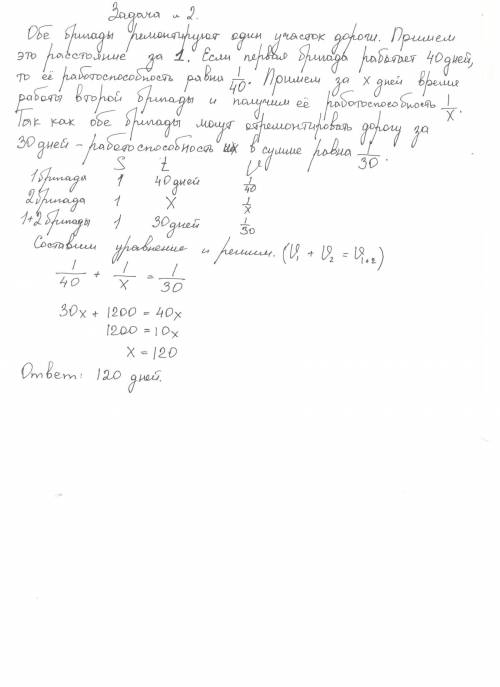 Задача № 2.
Обе бригады ремонтируют один участок дороги. Примем
это расстояние за 1. Если первая бригада работает 40 дней,
то её работоспособность равна 1/40. Примем за x дней время
работы второй бригады и получим её работоспособность 1/x.
Так как обе бригады могут отремонтировать дорогу за
30 дней - работоспособность их в сумме равна 1/30.
S t V
1 бригада 1 40 дней 1/40
2 бригада 1 X 1/x
1+2 бригады 1 30 дней 1/30
Составим уравнение и решим. (V₁ + V₂ = V₁₊₂)
1/40 + 1/x = 1/30
30x + 1200 = 40x
1200 = 10x
x = 120
Ответ: 120 дней.